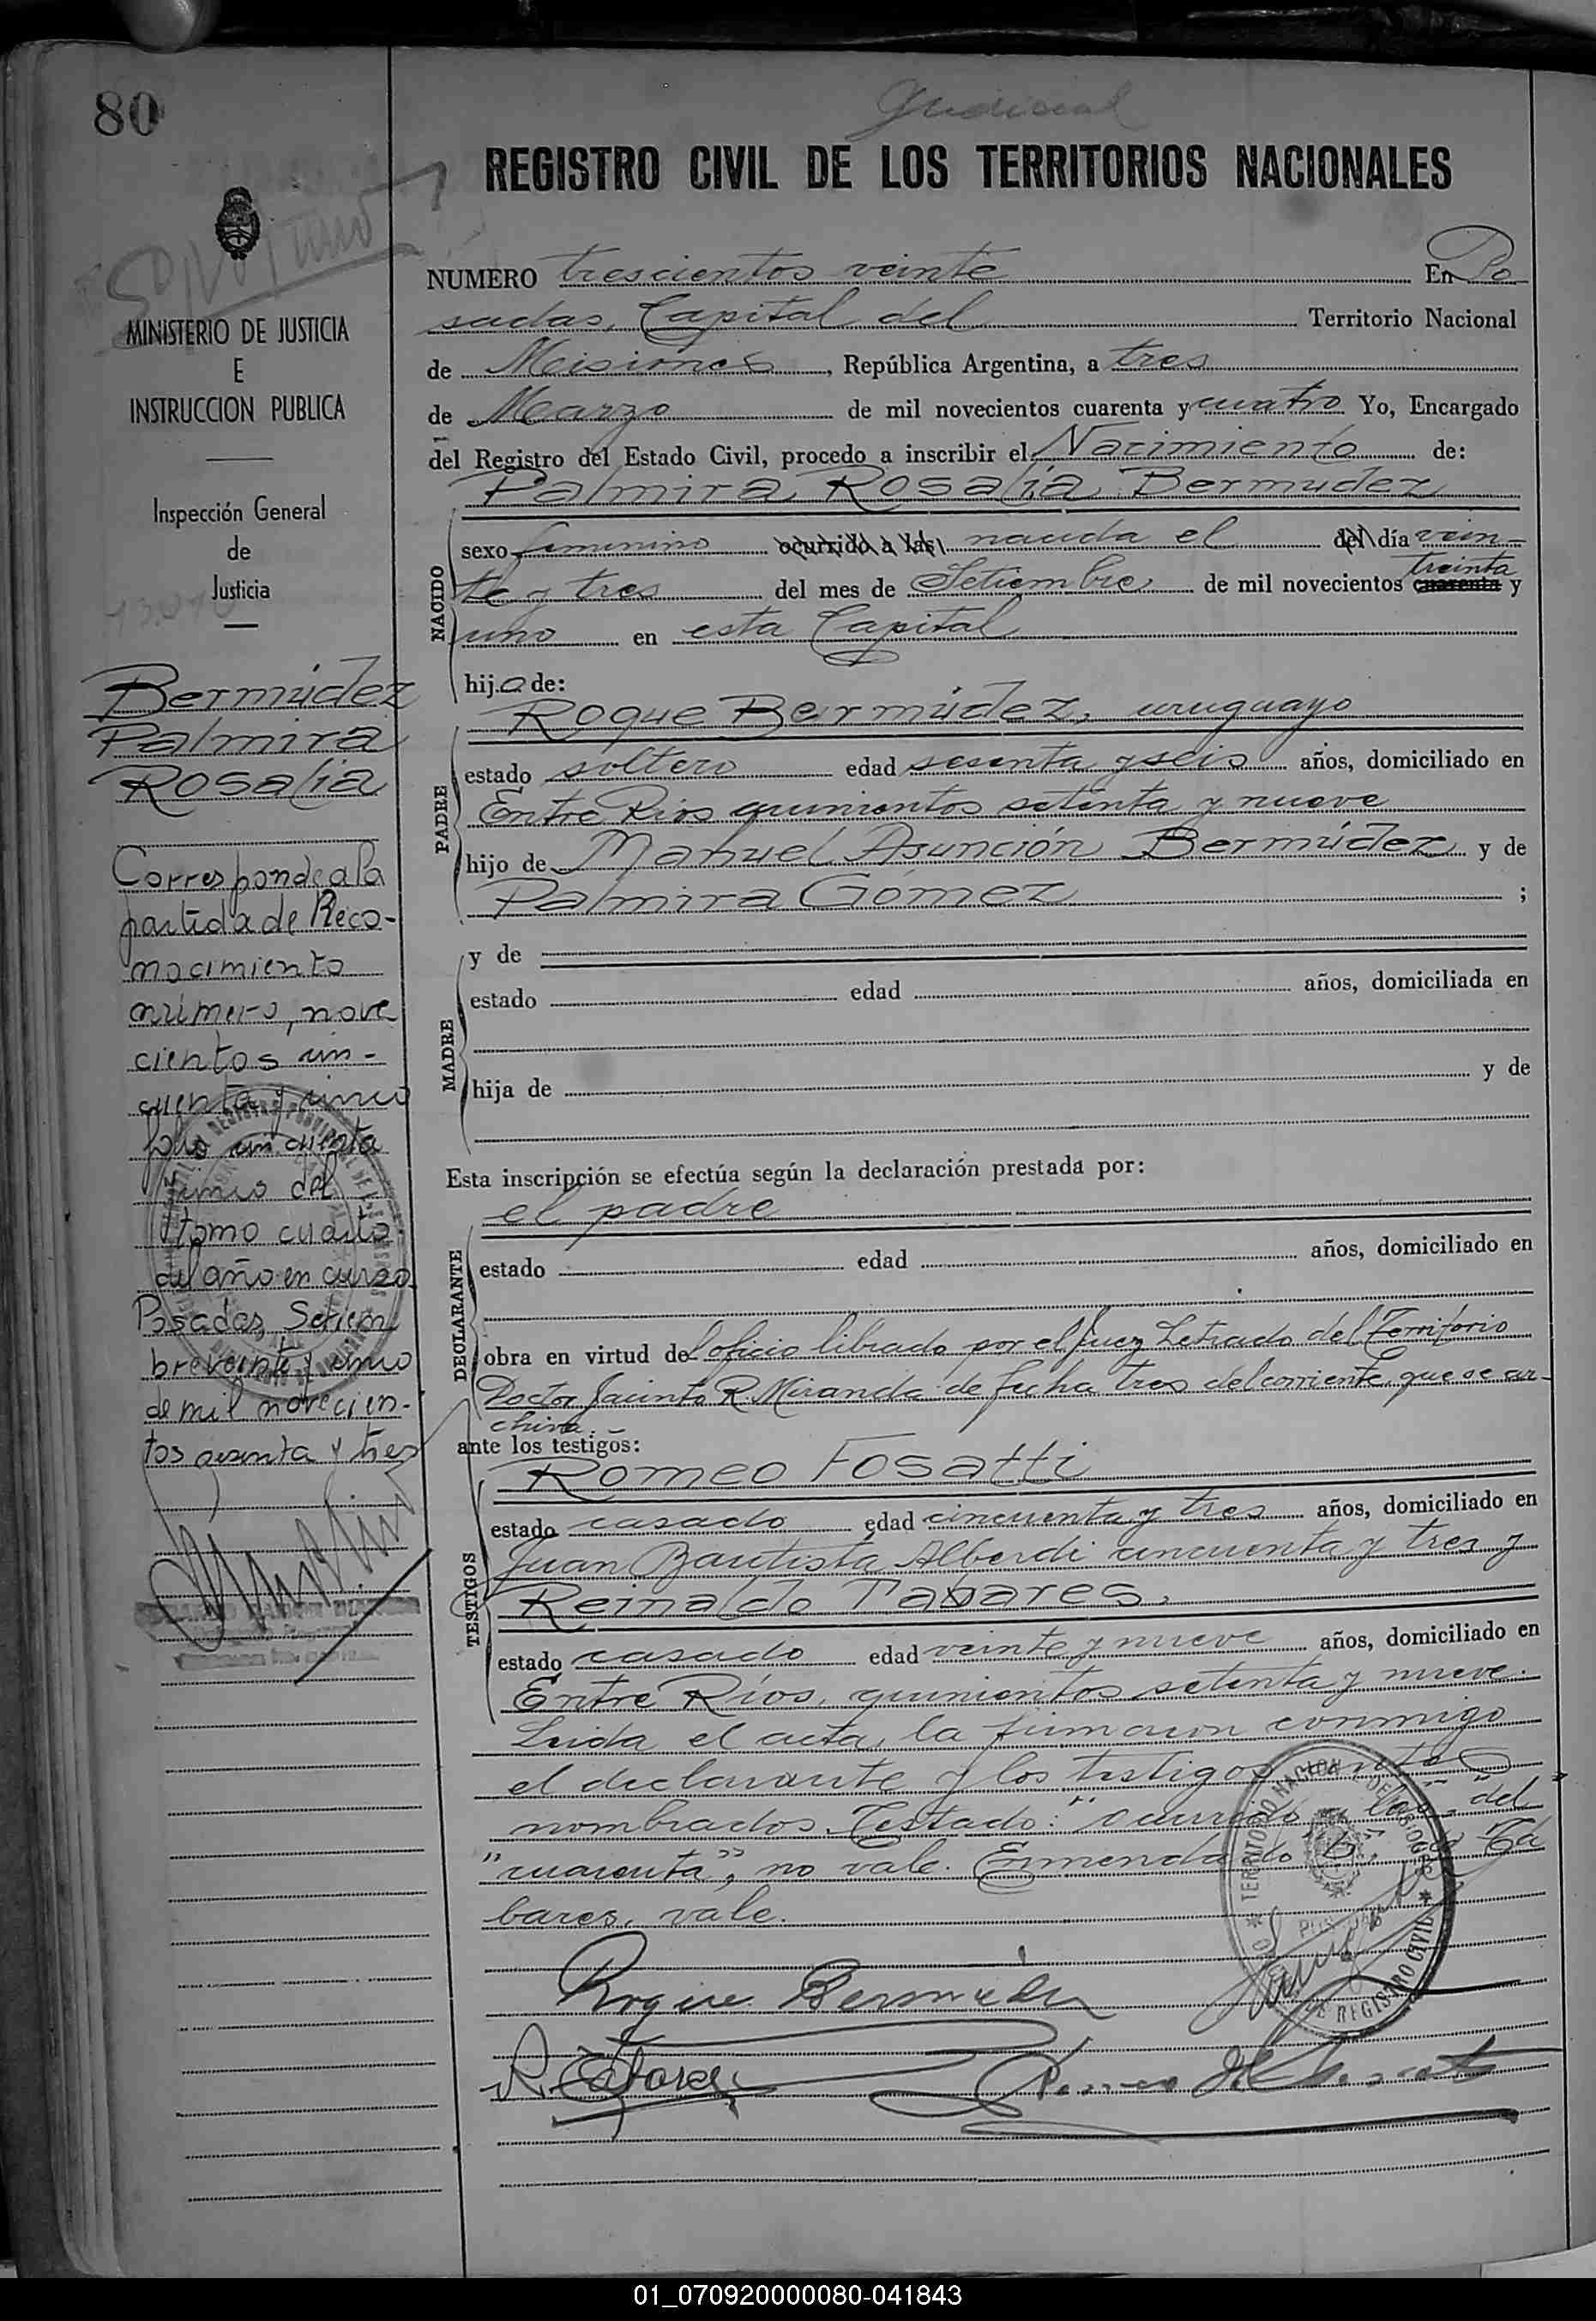 80
Judicial
REGISTRO CIVIL DE LOS TERRITORIOS NACIONALES
MINISTERIO DE JUSTICIA
E
INSTRUCCION PUBLICA
Inspección General
de
Justicia
Bermúdez
Palmira
Rosalía
Corresponde a la
partida de Reco-
nocimiento
número, nove
cientos cin-
cuenta y cinco
folio cincuenta
y cinco del
tomo cuarto
del año en curso
Posadas, Setiem
bre veinte y cinco
de mil novecien-
tos sesenta y tres
NUMERO trescientos veinte En Po
sadas, Capital del Territorio Nacional
de Misiones, República Argentina, a tres
de Marzo de mil novecientos cuarenta y cuatro Yo, Encargado
del Registro del Estado Civil, procedo a inscribir el Nacimiento de:
Palmira Rosalía Bermudez
NACIDO
sexo femenino ocurrido a las nacida el del día vein-
te y tres del mes de Setiembre de mil novecientos cuarenta treinta y
uno en esta Capital
hija de:
Roque Bermúdez, uruguayo
PADRE
estado soltero edad sesenta y seis años, domiciliado en
Entre Rios quinientos setenta y nueve
hijo de Manuel Asunción Bermúdez y de
Palmira Gómez ;
MADRE
y de
estado edad años, domiciliada en
hija de y de
Esta inscripción se efectúa según la declaración prestada por:
el padre
DECLARANTE
estado edad años, domiciliado en
obra en virtud del oficio librado por el Juez Letrado del Territorio
Doctor Jacinto R. Miranda de fecha tres del corriente, que se ar-
chiva.
ante los testigos:
Romeo Fosatti
TESTIGOS
estado casado edad cincuenta y tres años, domiciliado en
Juan Bautista Alberdi cincuenta y tres y
Reinaldo Tabares,
estado casado edad veinte y nueve años, domiciliado en
Entre Ríos, quinientos setenta y nueve.
Leida el acta, la firmaron conmigo
el declarante y los testigos
nombrados. Testado: "ocurrido a las", "del"
"cuarenta", no vale. Enmendado "b", Ta
bares, vale.
Roque Bermúdez
TERRITORIO NACIONAL DE MISIONES
REGISTRO CIVIL
01_070920000080-041843